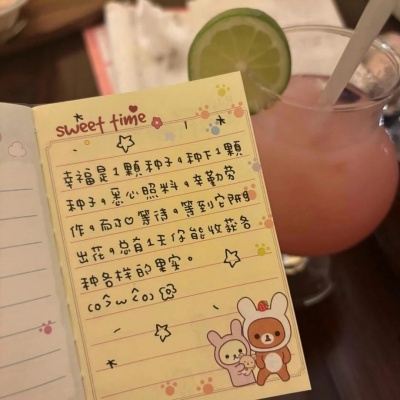 sweet time
幸福是1顆种子，种下1顆
种子，悉心照料，辛勤劳
作，而
等待，等到它開
出花，总有1天你能收获各
种各样的果实。